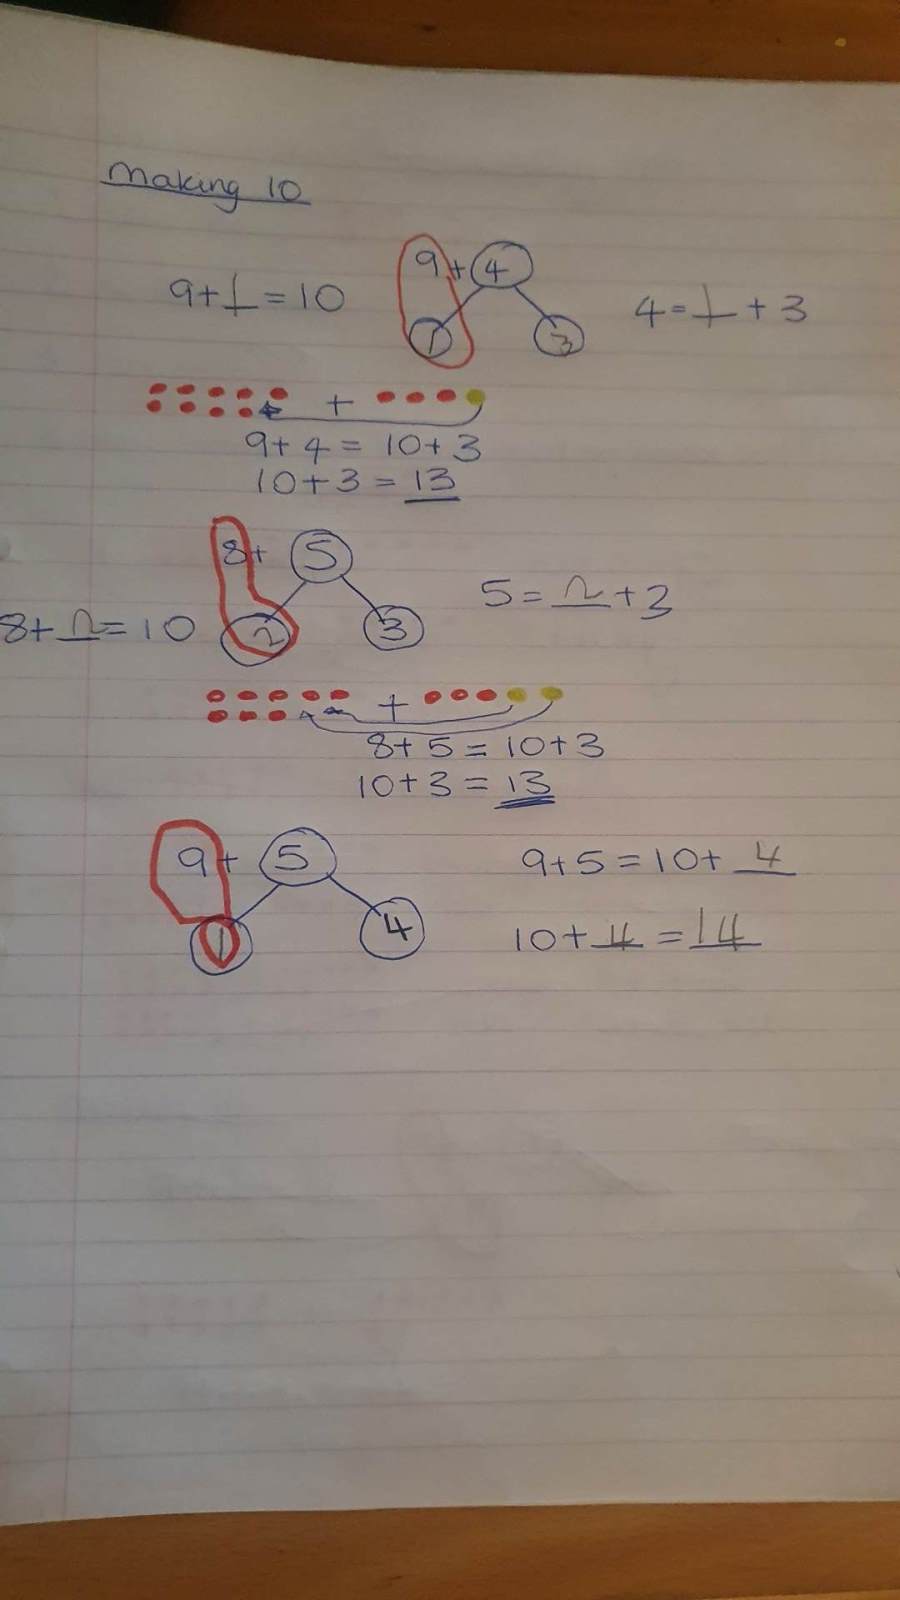 Making 10
9+1=10
9+4
1 3
4=1+3
+
9+4=10+3
10+3=13
8+5
2 3
8+2=10
5=2+3
+
8+5=10+3
10+3=13
9+5
1 4
9+5=10+4
10+4=14